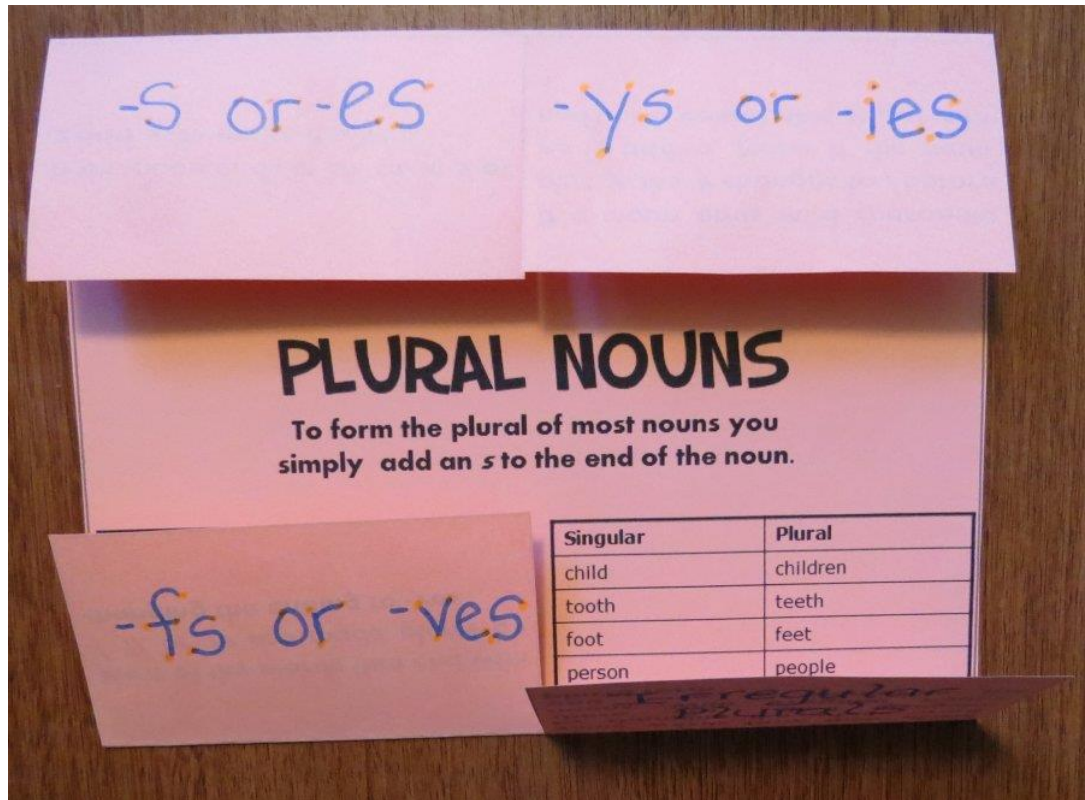 -s or -es
-ys or -ies
PLURAL NOUNS
To form the plural of most nouns you
simply add an s to the end of the noun.
-fs or -ves
Singular Plural
child children
tooth teeth
foot feet
person people
Irregular
Plurals